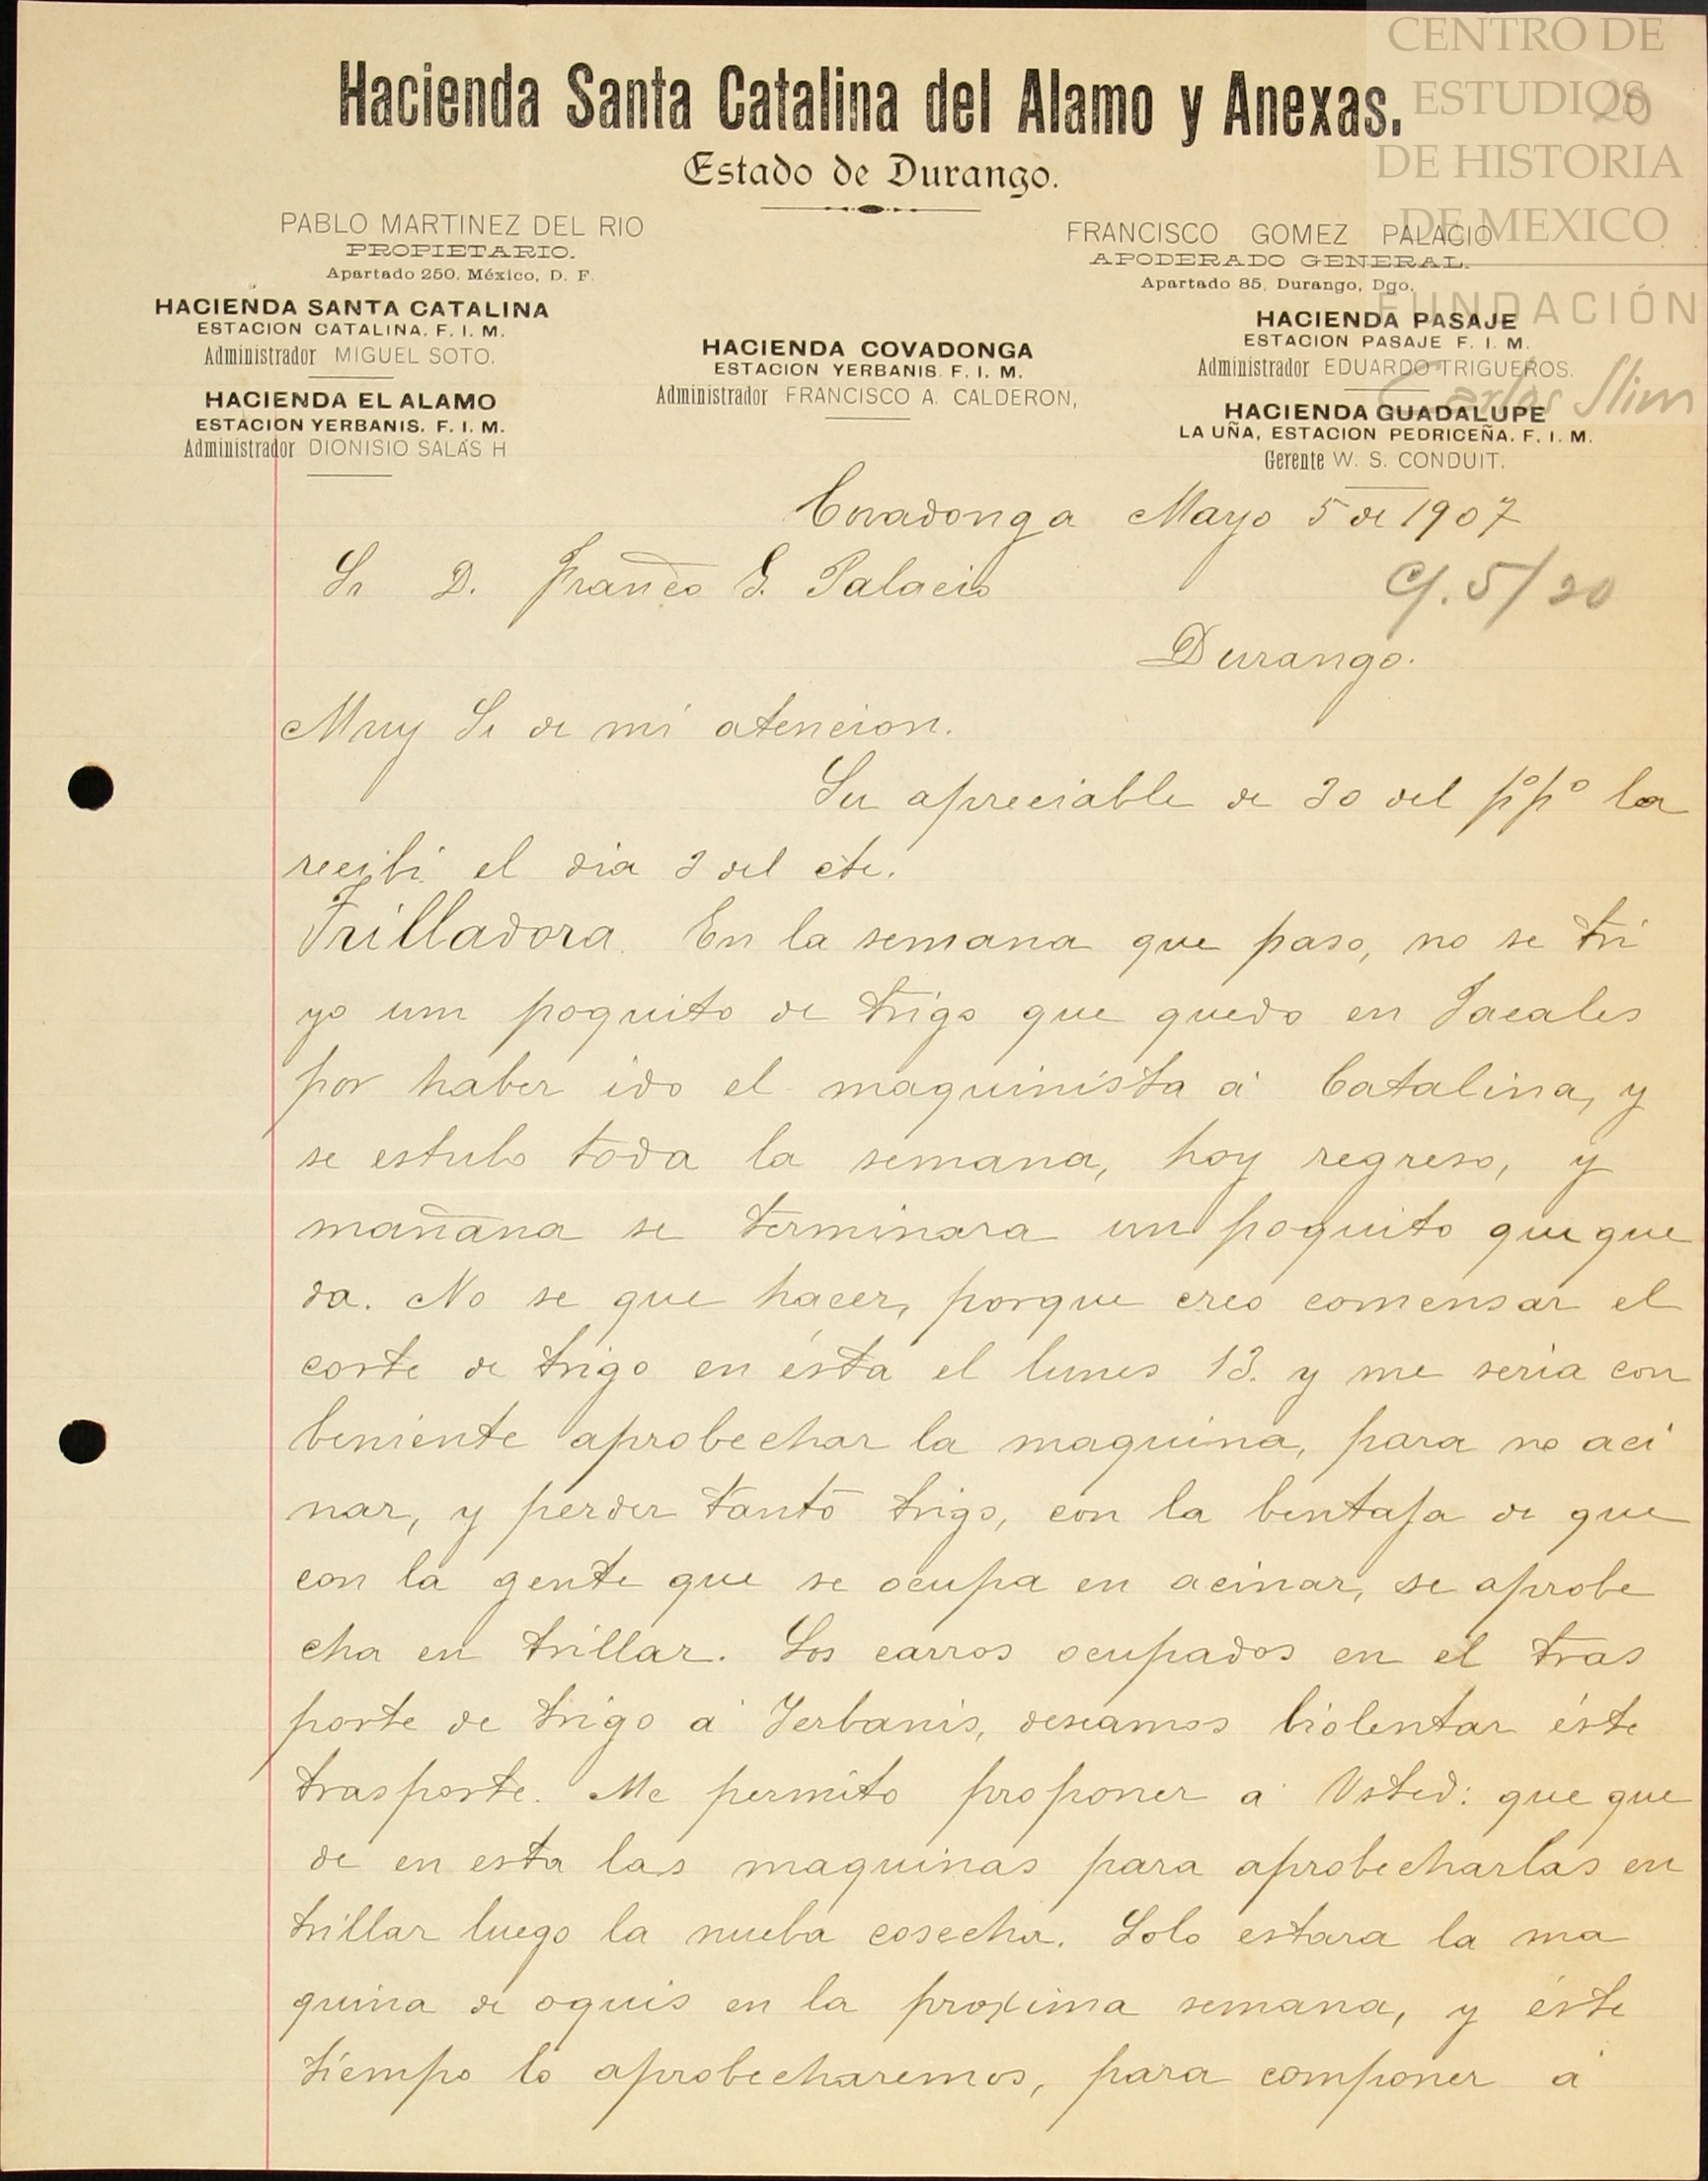 CENTRO DE
ESTUDIOS
DE HISTORIA
DE MEXICO
FUNDACIÓN
Carlos Slim
Hacienda Santa Catalina del Alamo y Anexas.
Estado de Durango.
PABLO MARTINEZ DEL RIO
PROPIETARIO.
Apartado 250. México, D. F.
FRANCISCO GOMEZ PALACIO
APODERADO GENERAL.
Apartado 85, Durango, Dgo.
HACIENDA SANTA CATALINA
ESTACION CATALINA. F. I. M.
Administrador MIGUEL SOTO.
HACIENDA EL ALAMO
ESTACION YERBANIS. F. I. M.
Administrador DIONISIO SALAS H
HACIENDA COVADONGA
ESTACION YERBANIS. F. I. M.
Administrador FRANCISCO A. CALDERON,
HACIENDA PASAJE
ESTACION PASAJE F. I. M.
Administrador EDUARDO TRIGUEROS.
HACIENDA GUADALUPE
LA UÑA, ESTACION PEDRICEÑA. F. I. M.
Gerente W. S. CONDUIT.
Covadonga Mayo 5 de 1907
Sr D. Franco G. Palacio
C/. 5/20
Durango.
Muy Sr de mi atencion.
Su apreciable de 30 del p°p° la
recibi el dia 3 del cte.
Trilladora. En la semana que paso, no se tri
yo um poquito de trigo que quedo en Jacales
por haber ido el maquinista á Catalina, y
se estubo toda la semana, hoy regreso, y
mañana se terminara un poquito que que
da. No se que hacer, porque creo comensar el
corte de trigo en ésta el lunes 13. y me seria con
beniente aprobechar la maquina, para no aci
nar, y perder tanto trigo, con la bentaja de que
con la gente que se ocupa en acinar, se aprobe
cha en trillar. Los carros ocupados en el tras
porte de trigo á Yerbanis, deseamos biolentar éste
trasporte. Me permito proponer á Usted: que que
de en esta las maquinas para aprobecharlas en
trillar luego la nueba cosecha. Solo estara la ma
quina de oquis en la proxima semana, y éste
tiempo lo aprobecharemos, para componer á